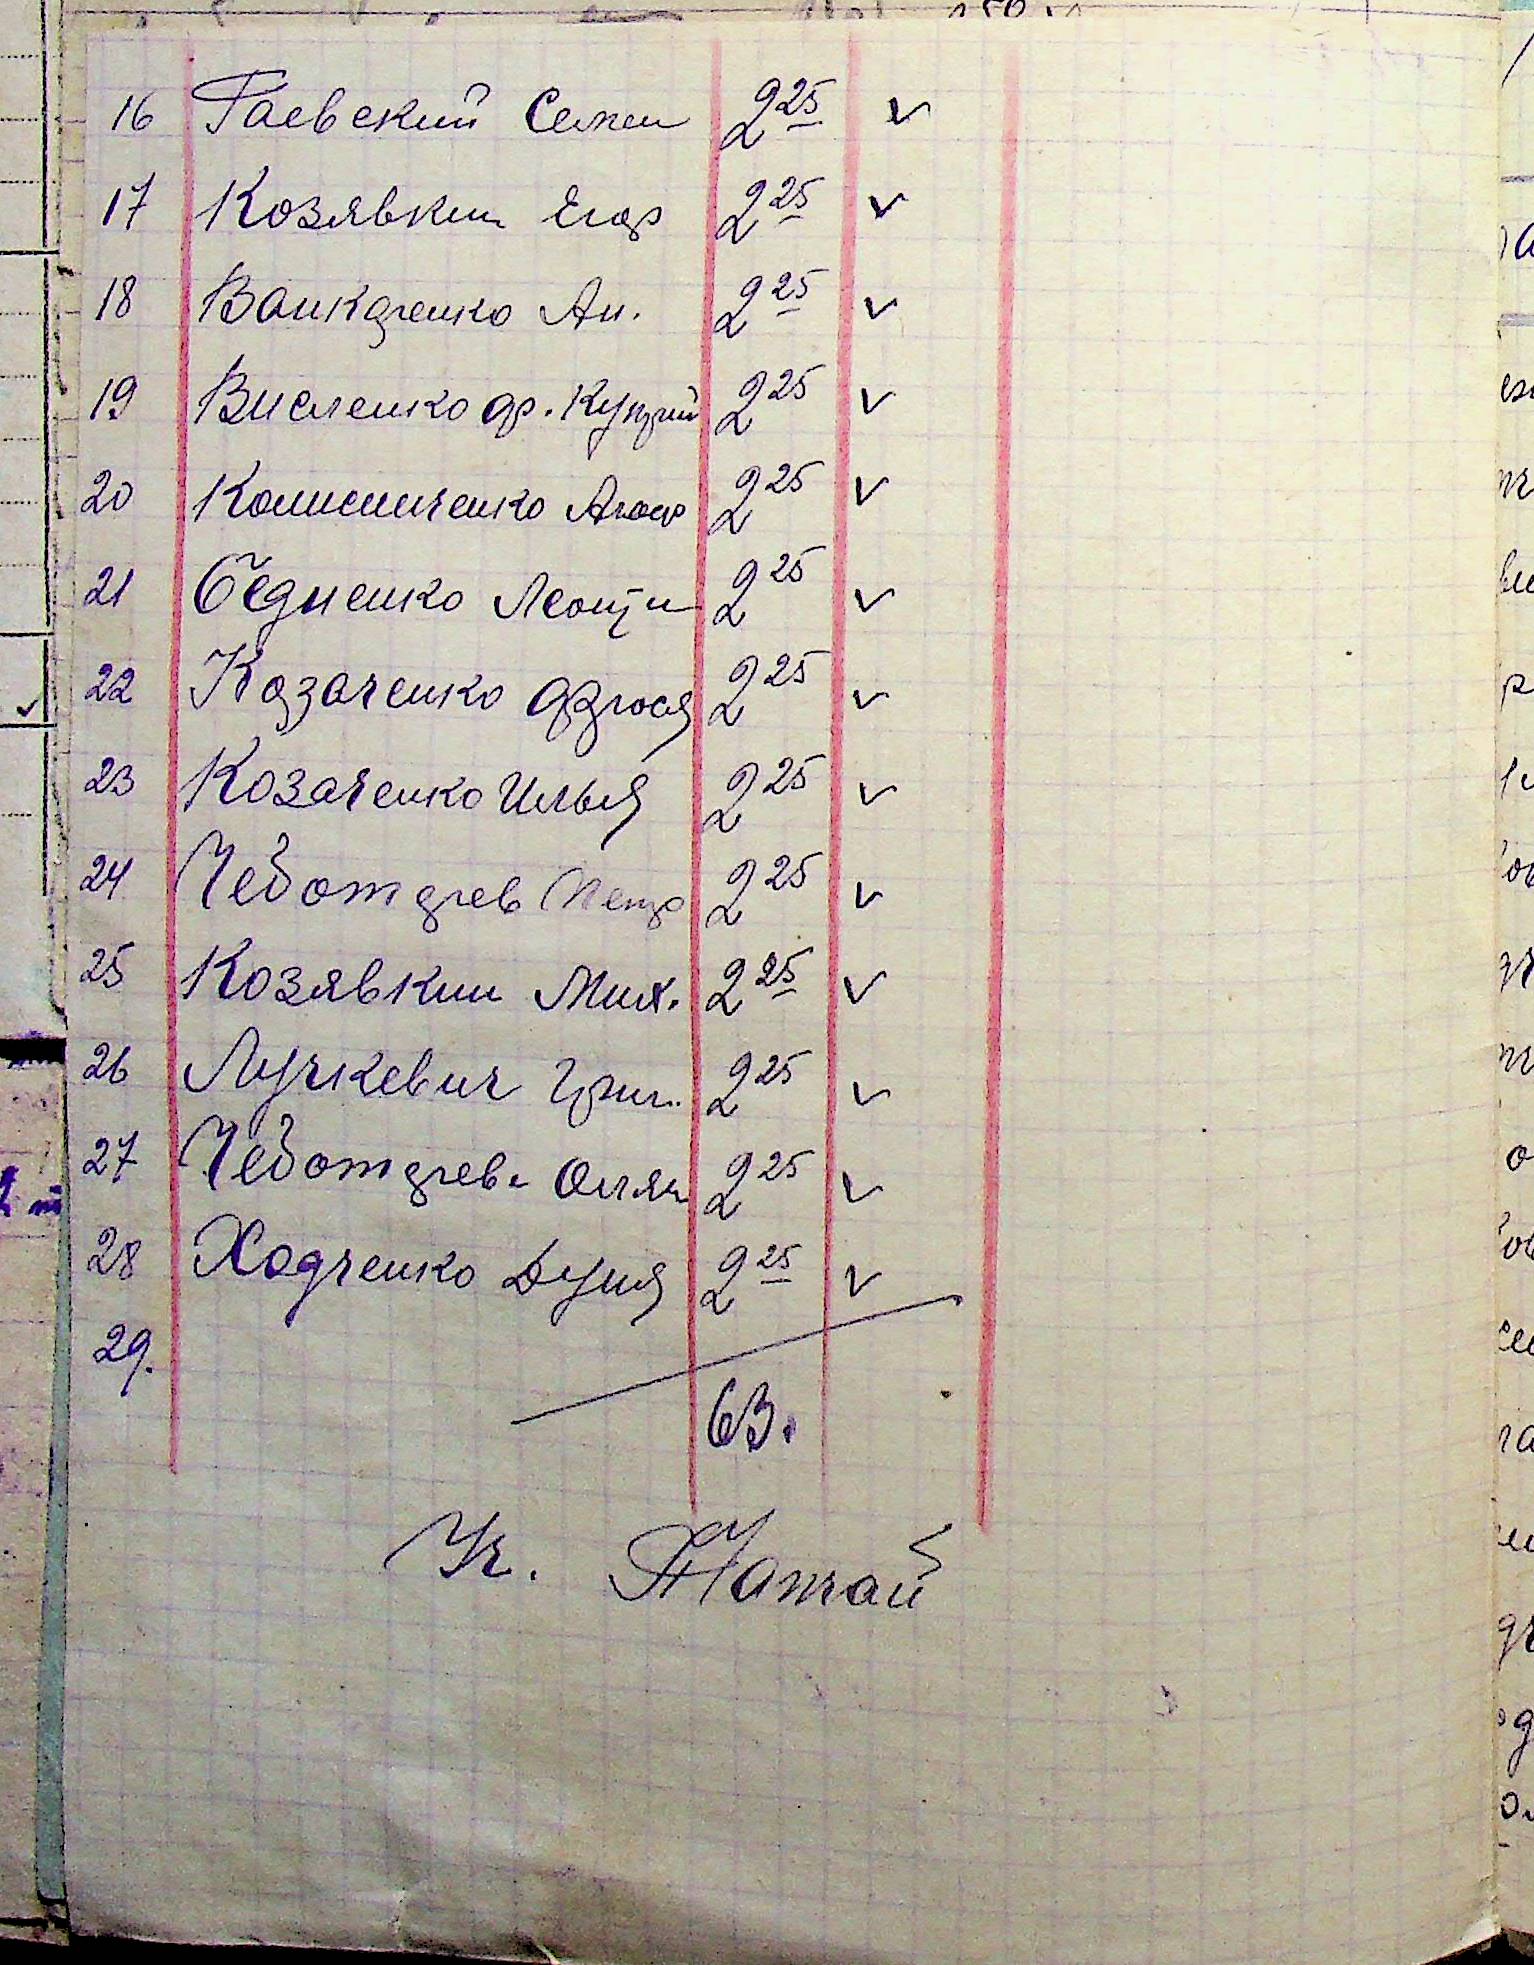 16 Гаевский Семен 2 25 ✓
17 Козявкин Егор 2 25 ✓
18 Ан. 2 25 ✓
19 Висленко 2 25 ✓
20 2 25 ✓
21 Бедненко Леонти 2 25 ✓
22 Козаченко 2 25 ✓
23 Козаченко Илья 2 25 ✓
24 Чеботарев Петр 2 25 ✓
25 Козявкин Мих. 2 25 ✓
26 Лучкевич Григ. 2 25 ✓
27 2 25 ✓
28 Ходченко Дуня 2 25 ✓
29.
63.
Уч.